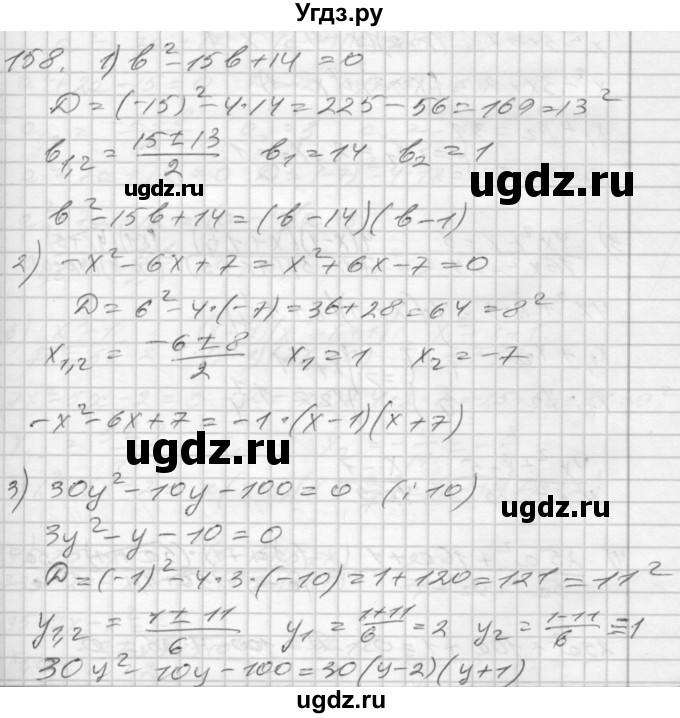 Угдз.ру
158. 1) b² - 15b + 14 = 0
D = (-15)² - 4·14 = 225 - 56 = 169 = 13²
b₁,₂ = (15 ± 13)/2 b₁ = 14 b₂ = 1
ugdz.ru
ugdz.ru
b² - 15b + 14 = (b - 14)(b - 1)
2) -x² - 6x + 7 = x² + 6x - 7 = 0
D = 6² - 4·(-7) = 36 + 28 = 64 = 8²
x₁,₂ = (-6 ± 8)/2 x₁ = 1 x₂ = -7
ugdz.ru
-x² - 6x + 7 = -1·(x - 1)(x + 7)
ugdz.ru
3) 30y² - 10y - 100 = 0 (: 10)
ugdz.ru
3y² - y - 10 = 0
D = (-1)² - 4·3·(-10) = 1 + 120 = 121 = 11²
y₁,₂ = (1 ± 11)/6 y₁ = (1+11)/6 = 2 y₂ = (1-11)/6 = 1
30y² - 10y - 100 = 30(y - 2)(y + 1)
ugdz.ru
ugdz.ru